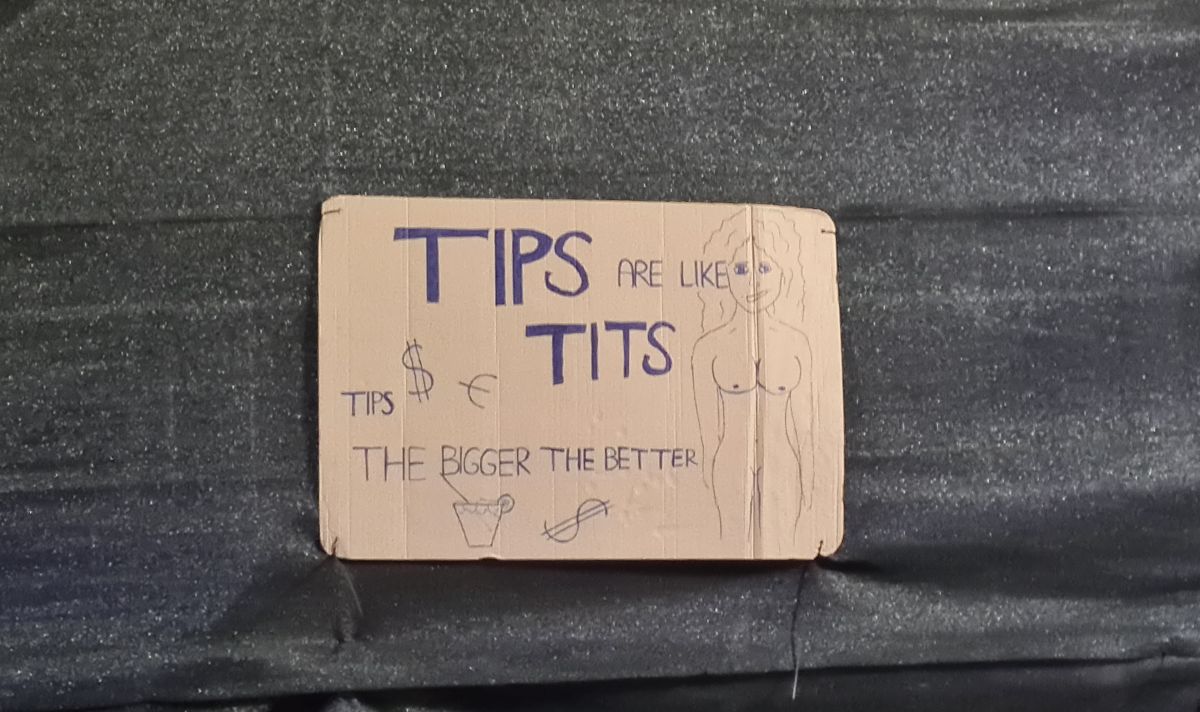 TIPS ARE LIKE
TITS
TIPS $ €
THE BIGGER THE BETTER
$